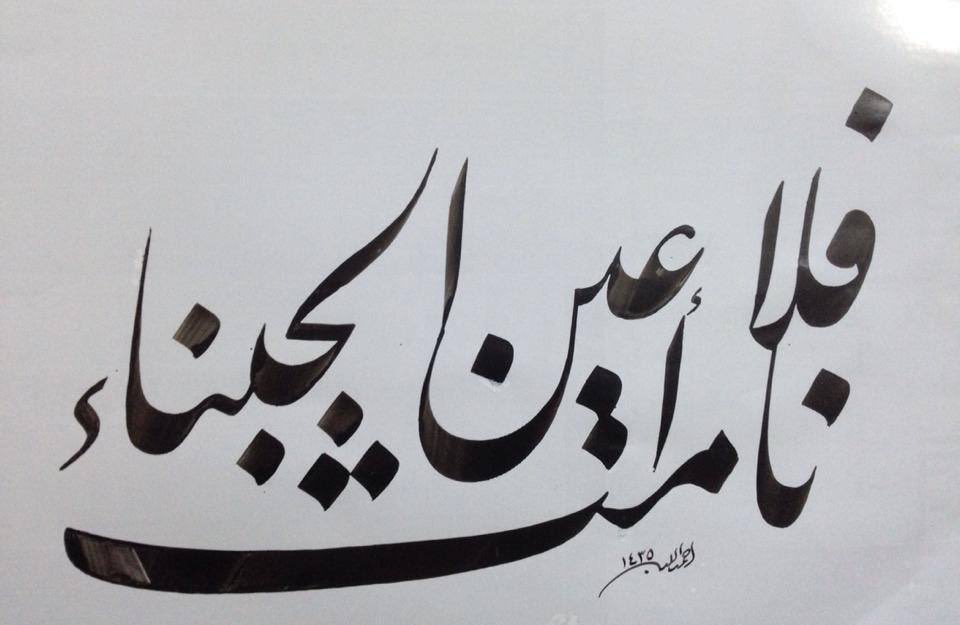 فلا نامت أعين الجبناء
١٤٣٥